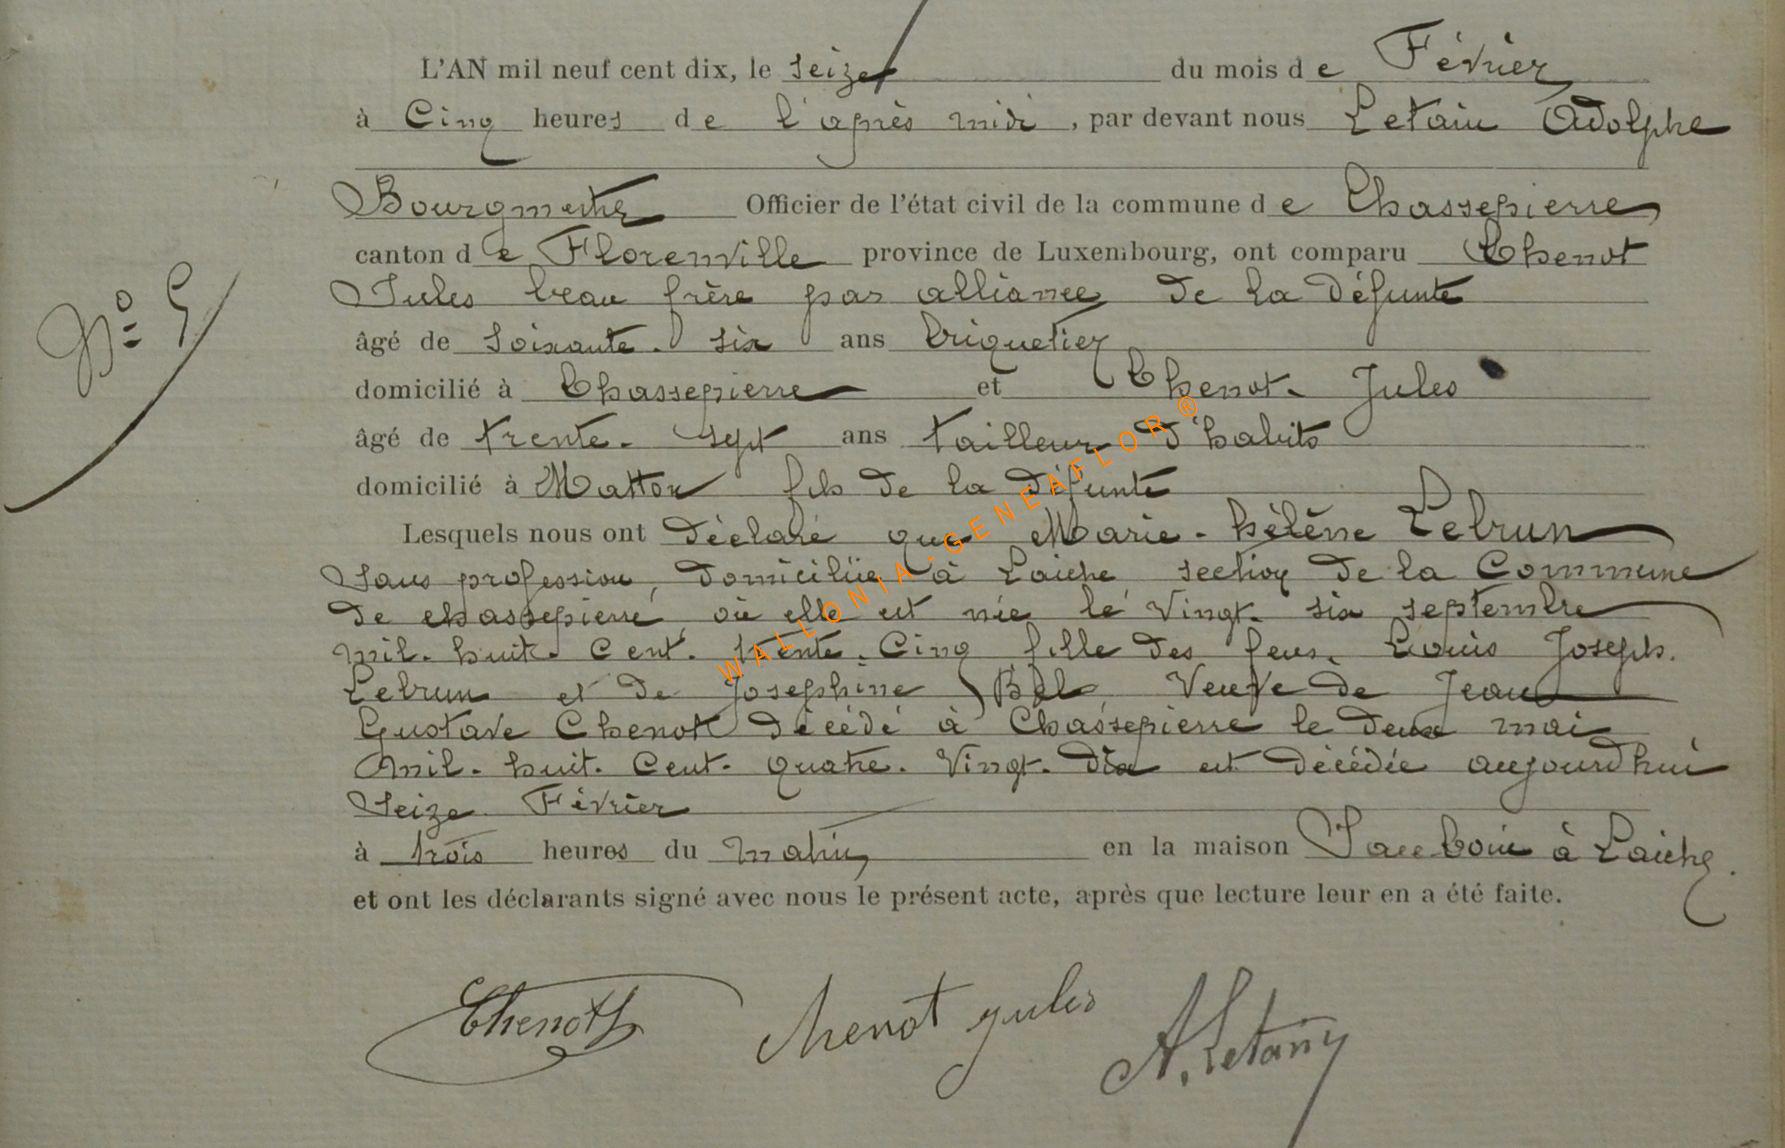 L'AN mil neuf cent dix, le seize du mois de Février
à Cinq heures de l'après midi, par devant nous Letain Adolphe
Bourgmestre Officier de l'état civil de la commune de Chassepierre
canton de Florenville province de Luxembourg, ont comparu Chenot
N° 5
Jules beau frère par alliance de la défunte
âgé de soixante-six ans briquetier
domicilié à Chassepierre et Chenot Jules
âgé de trente-sept ans tailleur d'habits
domicilié à Matton fils de la défunte
Lesquels nous ont déclaré que Marie-hélène Lebrun
sans profession, domiciliée à Laiche section de la Commune
de chassepierre, où elle est née le vingt-six septembre
mil-huit-cent-trente-Cinq fille des feus, Louis Joseph
Lebrun et de Josephine Bel Veuve de Jean
Gustave Chenot décédé à Chassepierre le deux mai
mil-huit-Cent-quatre-Vingt-dix est décédée aujourd'hui
seize Février
à trois heures du matin, en la maison à Laiche.
et ont les déclarants signé avec nous le présent acte, après que lecture leur en a été faite.
Chenot J chenot jules A. Letain
WALLONIA-GENEAFLOR®